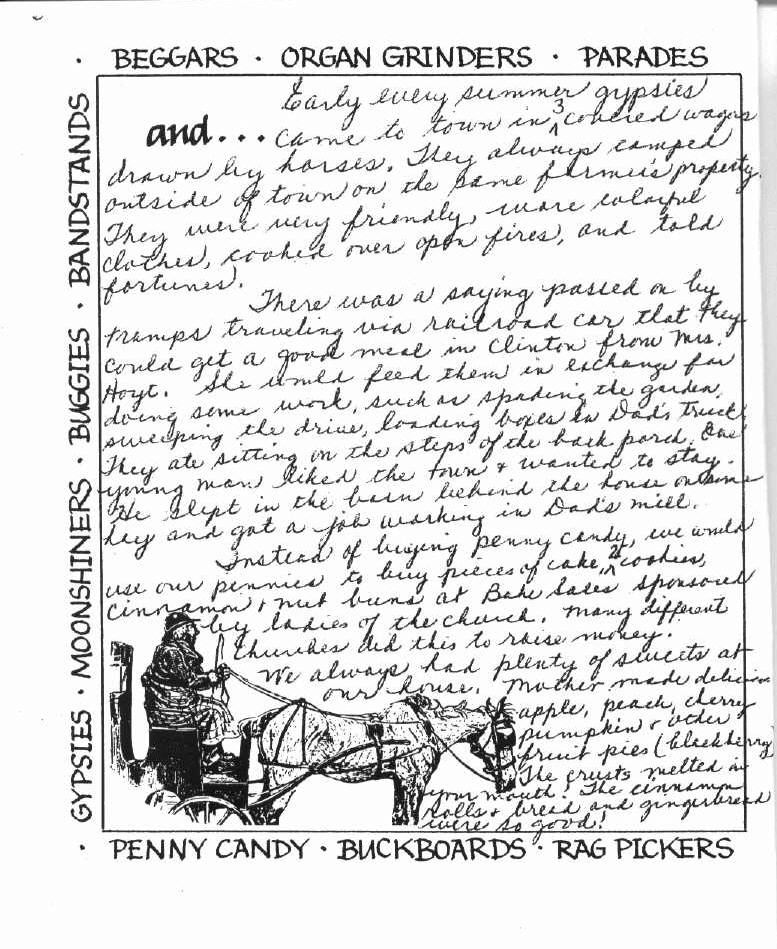 · BEGGARS · ORGAN GRINDERS · PARADES
GYPSIES · MOONSHINERS · BUGGIES · BANDSTANDS
and...
Early every summer gypsies
came to town in 3 covered wagons
drawn by horses. They always camped
outside of town on the same farmer's property.
They were very friendly, wore colorful
clothes, cooked over open fires, and told
fortunes.
There was a saying passed on by
tramps traveling via railroad car that they
could get a good meal in Clinton from Mrs.
Hoyt. She would feed them in exchange for
doing some work, such as spading the garden,
sweeping the drive, loading boxes in Dad's truck.
They ate sitting on the steps of the back porch. One
young man liked the town & wanted to stay.
He slept in the barn behind the house on some
hay and got a job working in Dad's mill.
Instead of buying penny candy, we would
use our pennies to buy pieces of cake, 2¢ cookies,
cinnamon & nut buns at Bake Sales sponsored
by ladies of the church. Many different
churches did this to raise money.
We always had plenty of sweets at
our house. Mother made delicious
apple, peach, cherry
pumpkin & other
fruit pies (blackberry)
The crusts melted in
your mouth! The cinnamon
rolls & bread and gingerbread
were so good!
· PENNY CANDY · BUCKBOARDS · RAG PICKERS